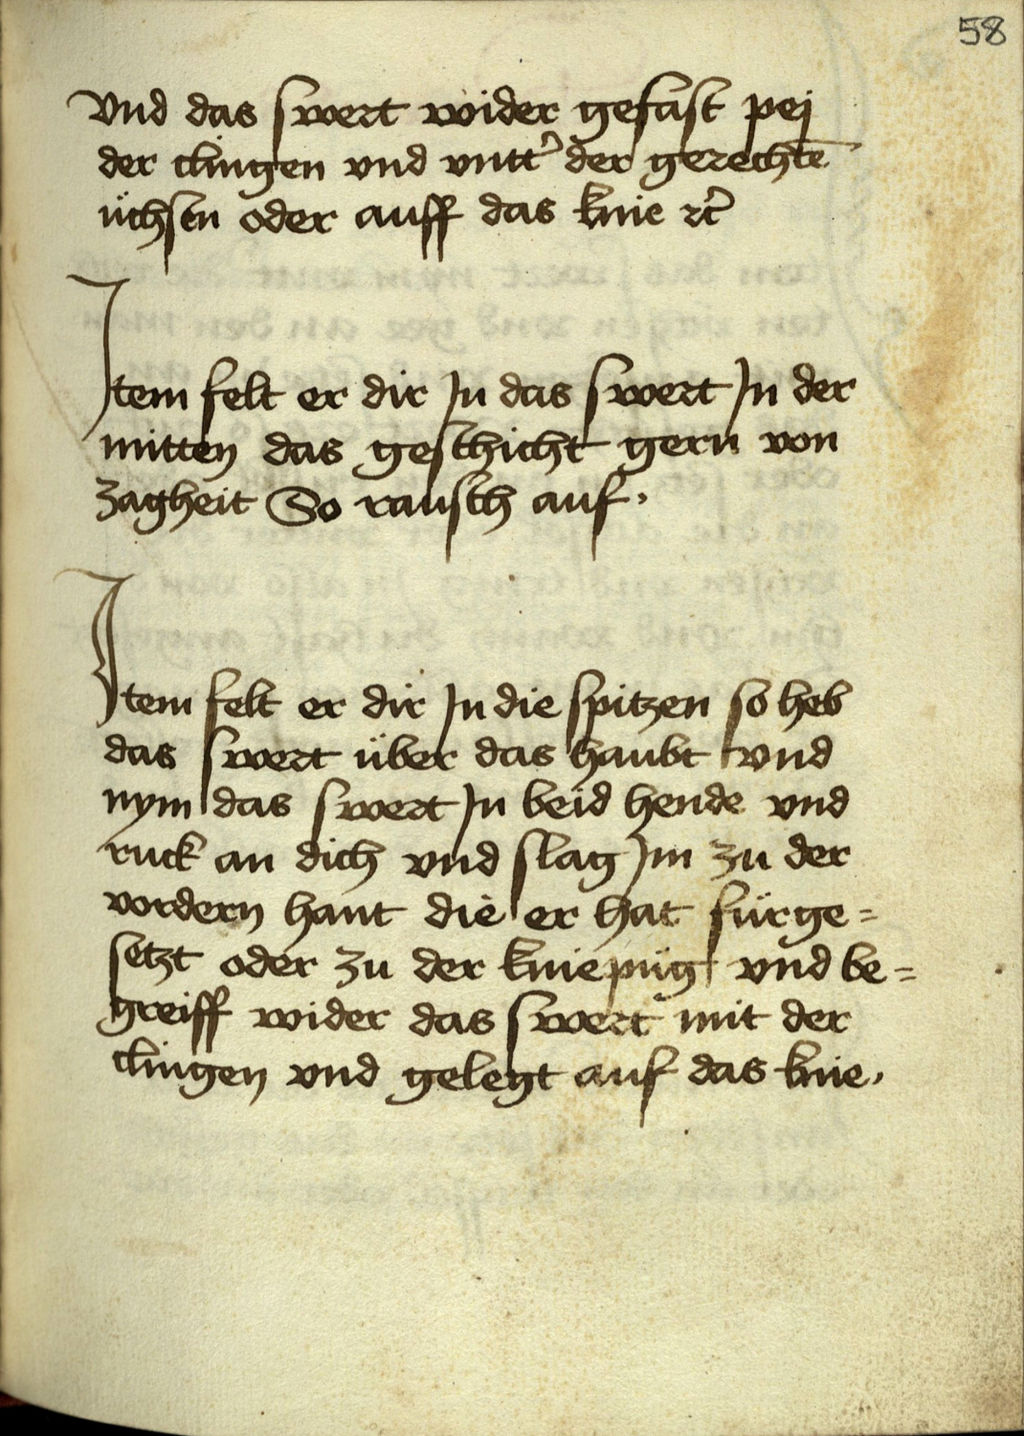 58
vnd das swert wider gefast pej
der clingen vnd vntt' der gerechtē
üchsen oder auff das knie rc̄
Item felt er dir In das swert In der
mitten das geschicht gern von
zagheit So rausch auf.
Item felt er dir In die spitzen so heb
das swert über das haubt vnd
nym das swert In beid hende vnd
ruck an dich vnd slag Im zu der
vordern hant die er hat fürge=
setzt oder zu der kniepüg vnd be=
greiff wider das swert mit der
clingen vnd gelegt auf das knie.